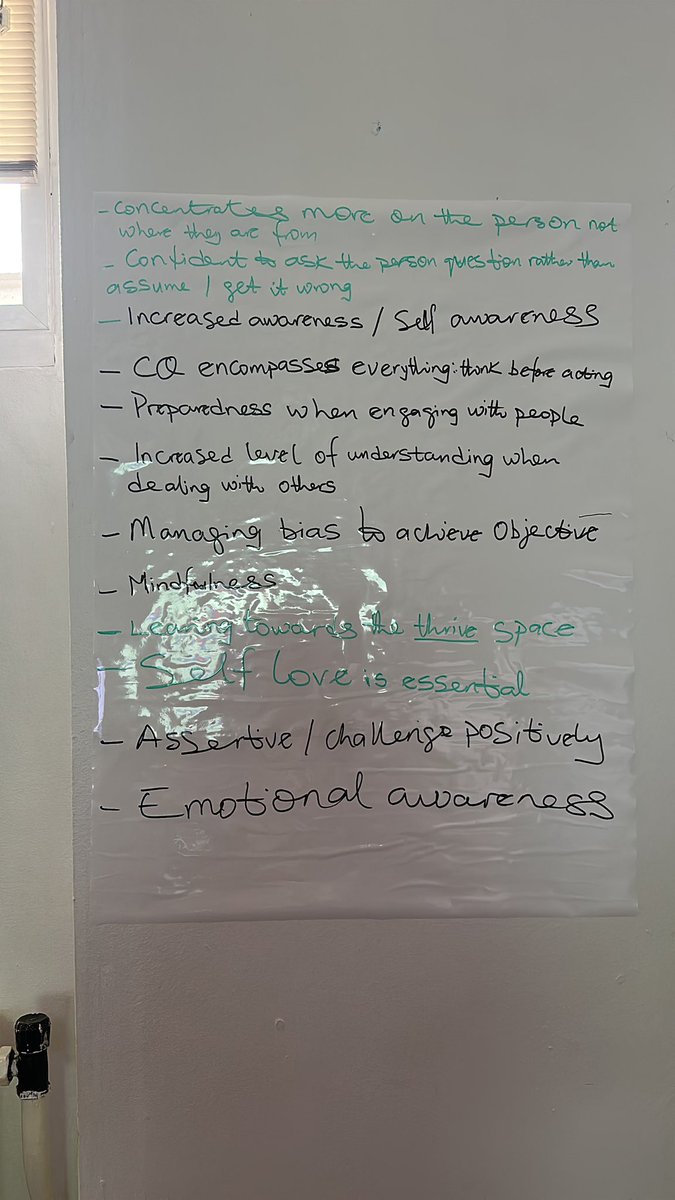 - Concentrates more on the person not
where they are from
- Confident to ask the person question rather than
assume / get it wrong
- Increased awareness / Self awareness
- CQ encompasses everything: think before acting
- Preparedness when engaging with people
- Increased level of understanding when
dealing with others
- Managing bias to achieve Objective
- Mindfulness
- Leaning towards the thrive space
- Self Love is essential
- Assertive / challenge positively
- Emotional awareness